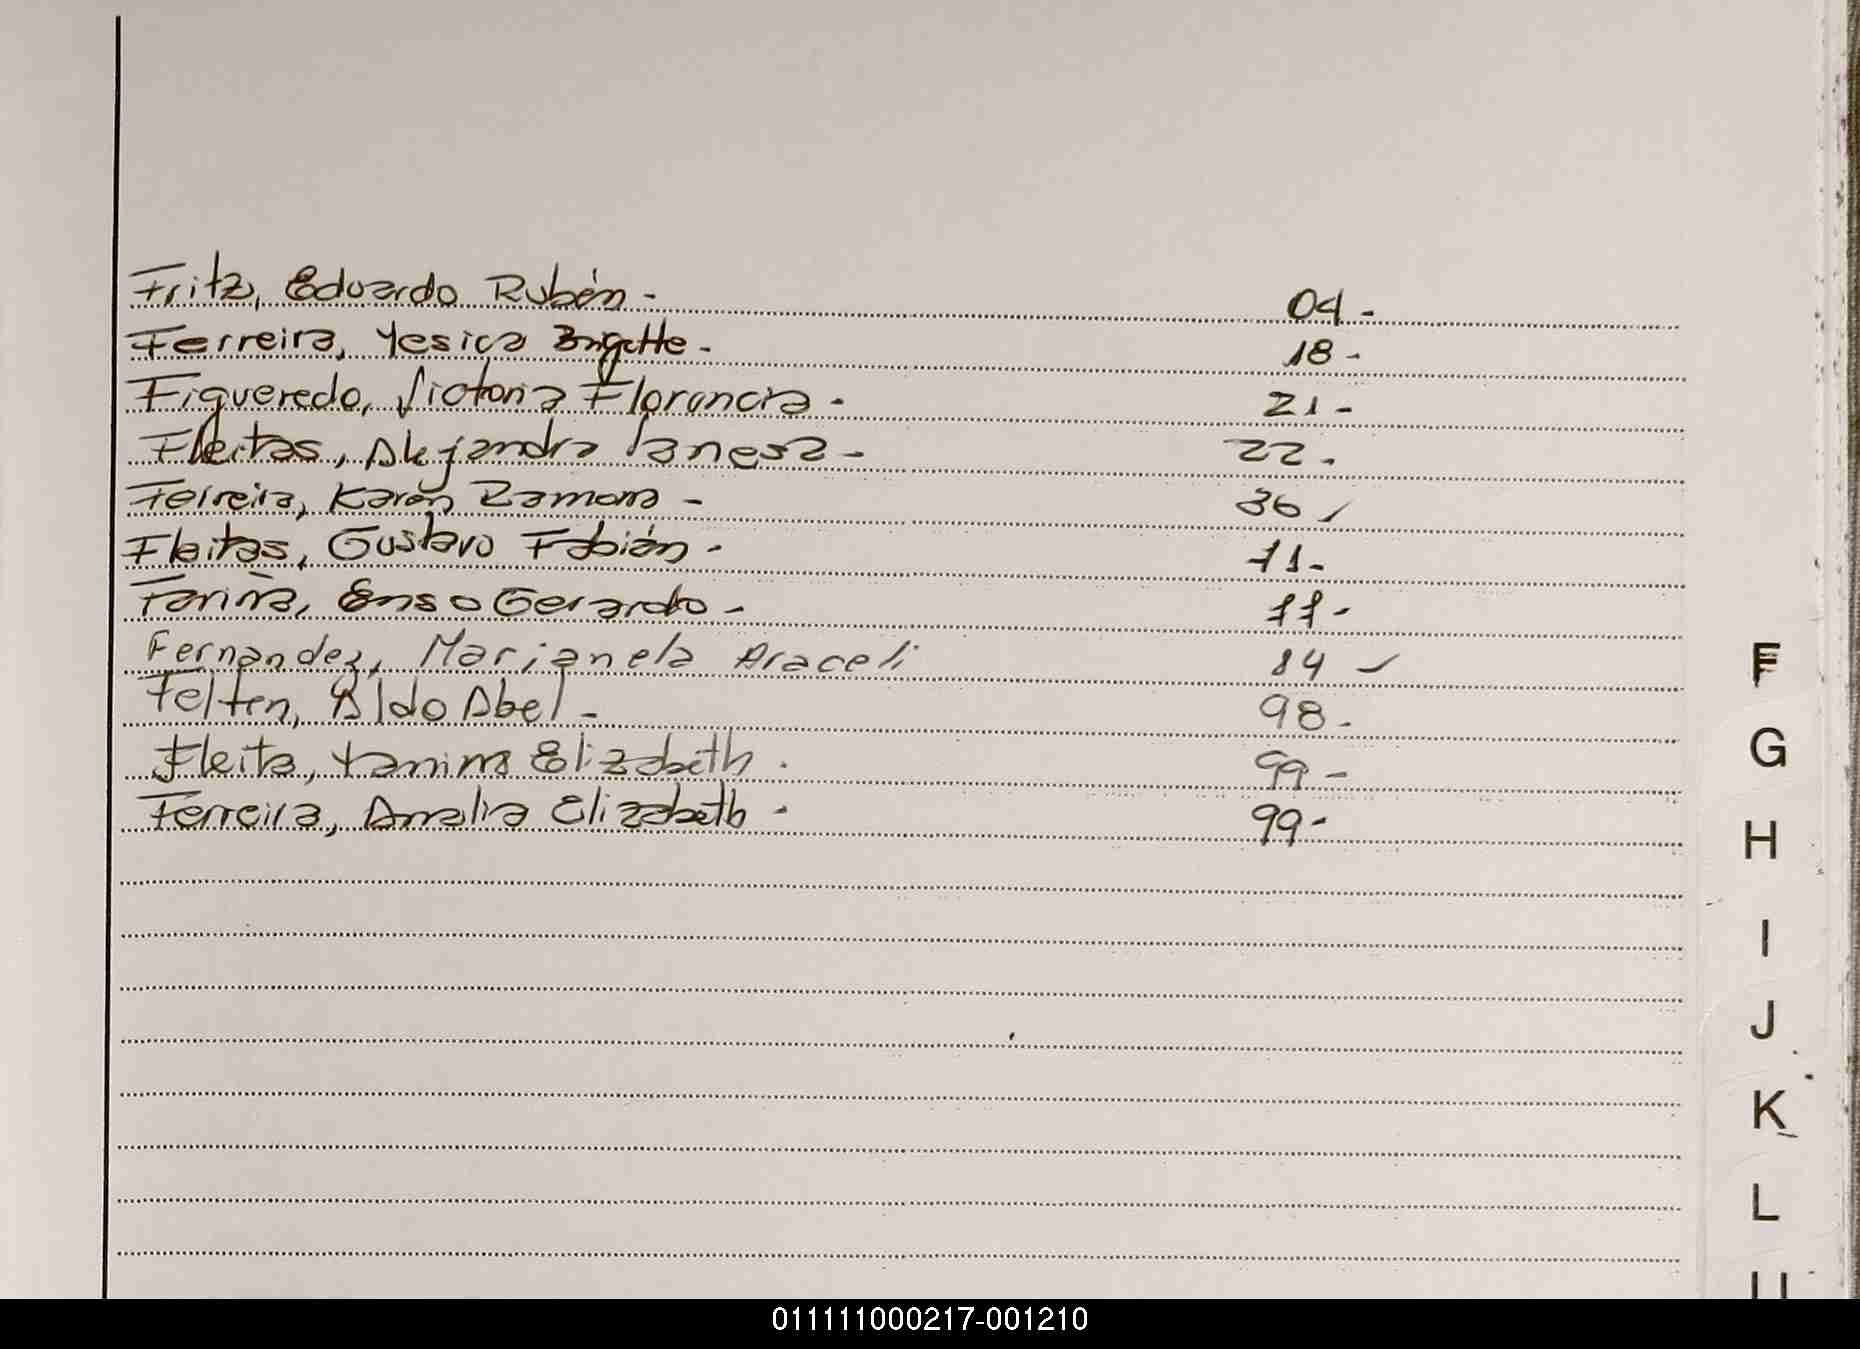 Fritz, Eduardo Rubén - 04 -
Ferreira, Yesica Brigette - 18 -
Figueredo, Victoria Florencia - 21 -
Fleitas, Alejandra Vanesa - 22 -
Ferreira, Karen Ramona - 36
Fleitas, Gustavo Fabián - 71 -
Fariña, Enso Gerardo - 77 -
Fernandez, Marianela Araceli 84
Felten, Aldo Abel - 98 -
Fleita, Yanina Elizabeth - 99 -
Ferreira, Amalia Elizabeth - 99 -
F
G
H
I
J
K
L
011111000217-001210